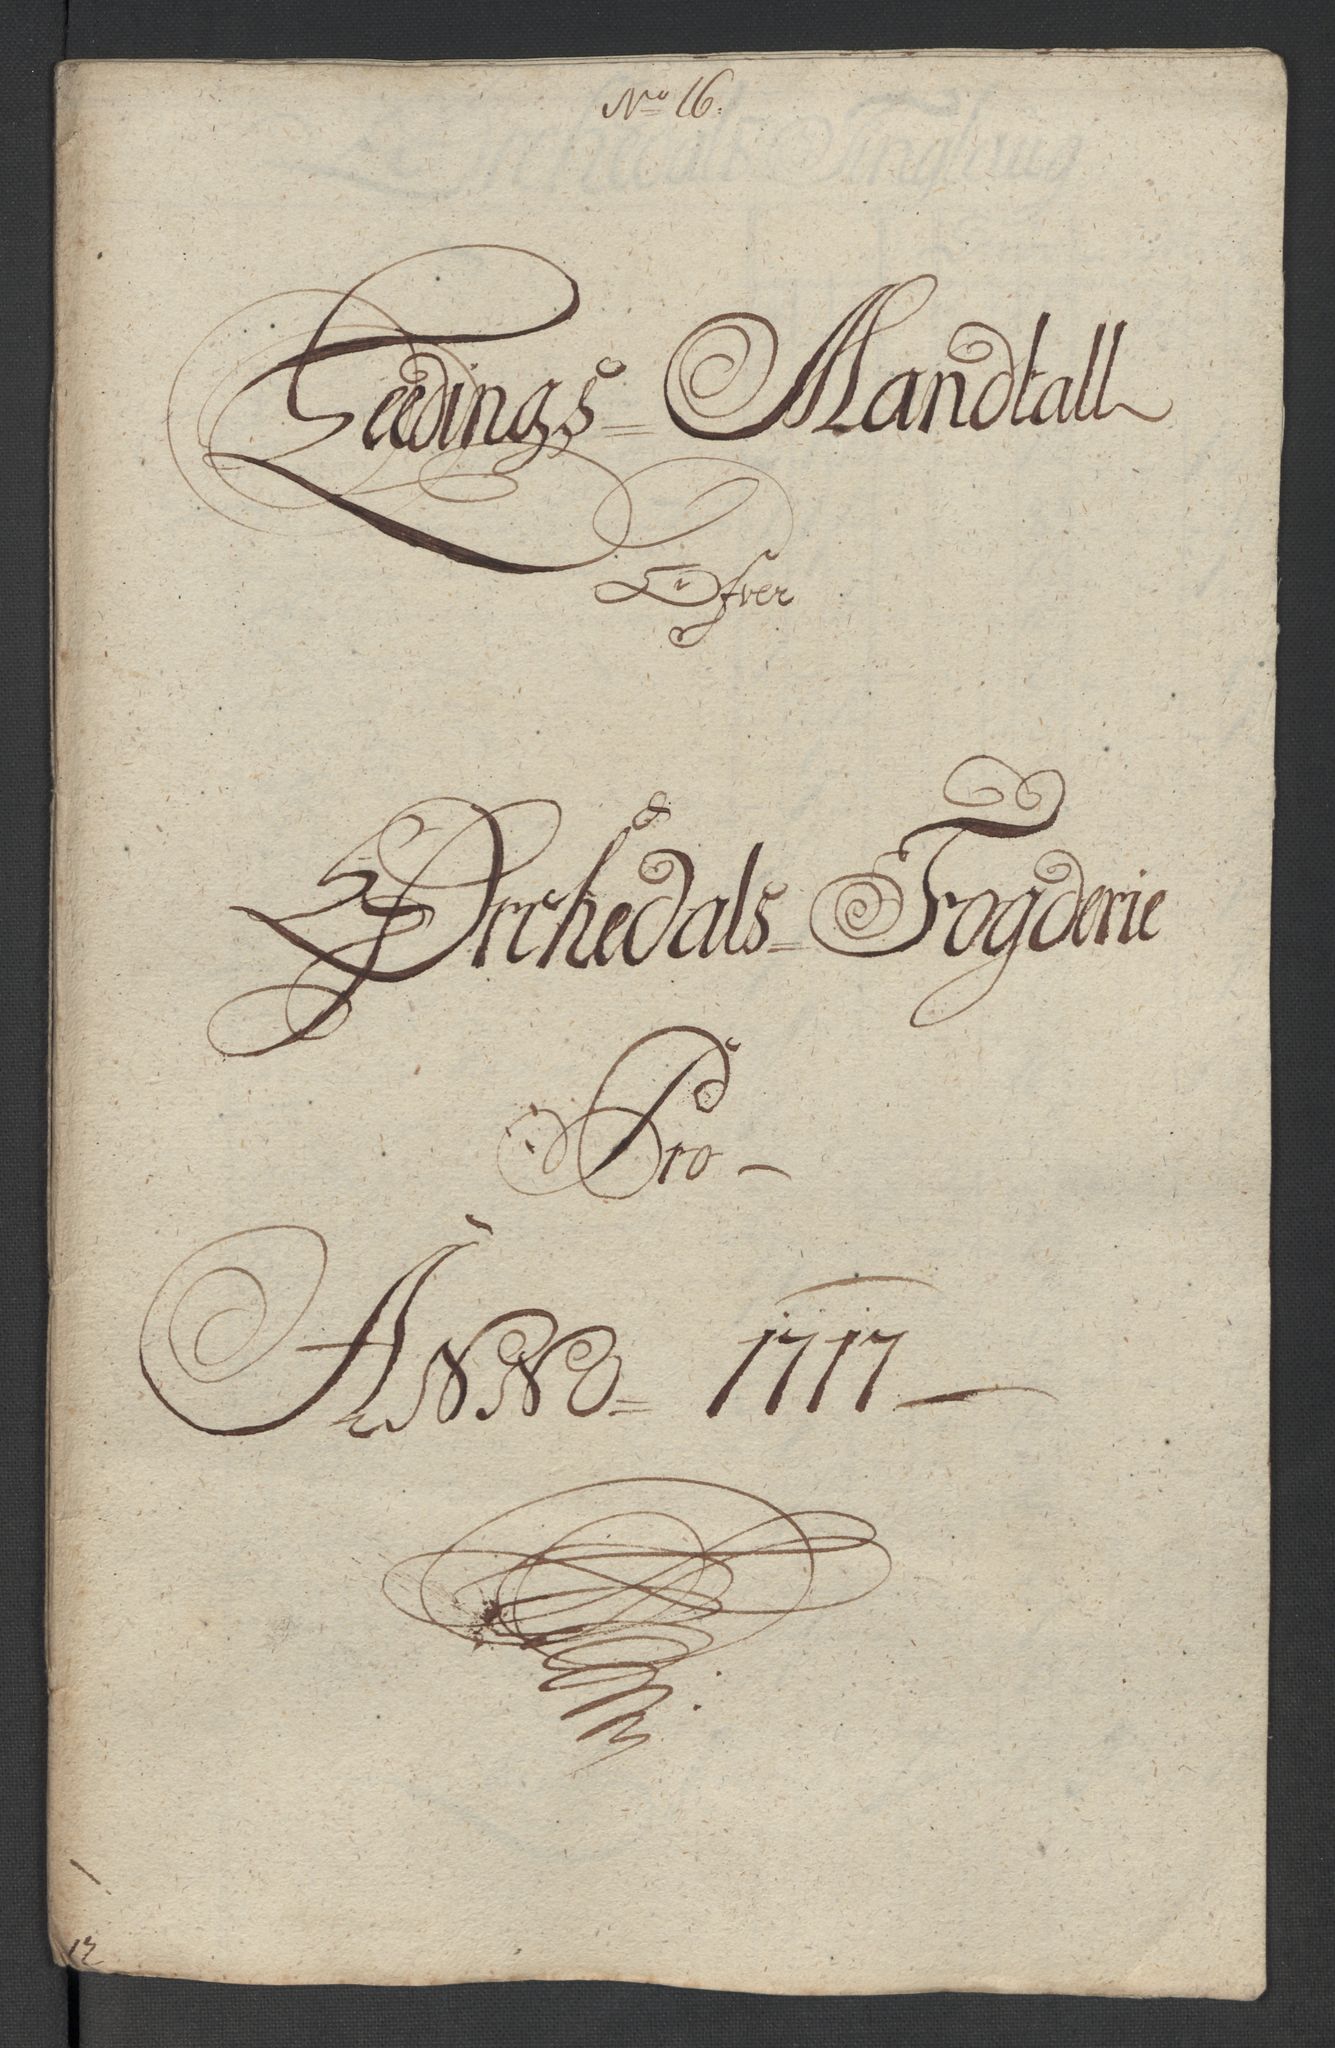 No 16.
Leedings= Mandtall
Ofver
Orchedals= Fogderie
Pro –
ANNO= 1717 –
12